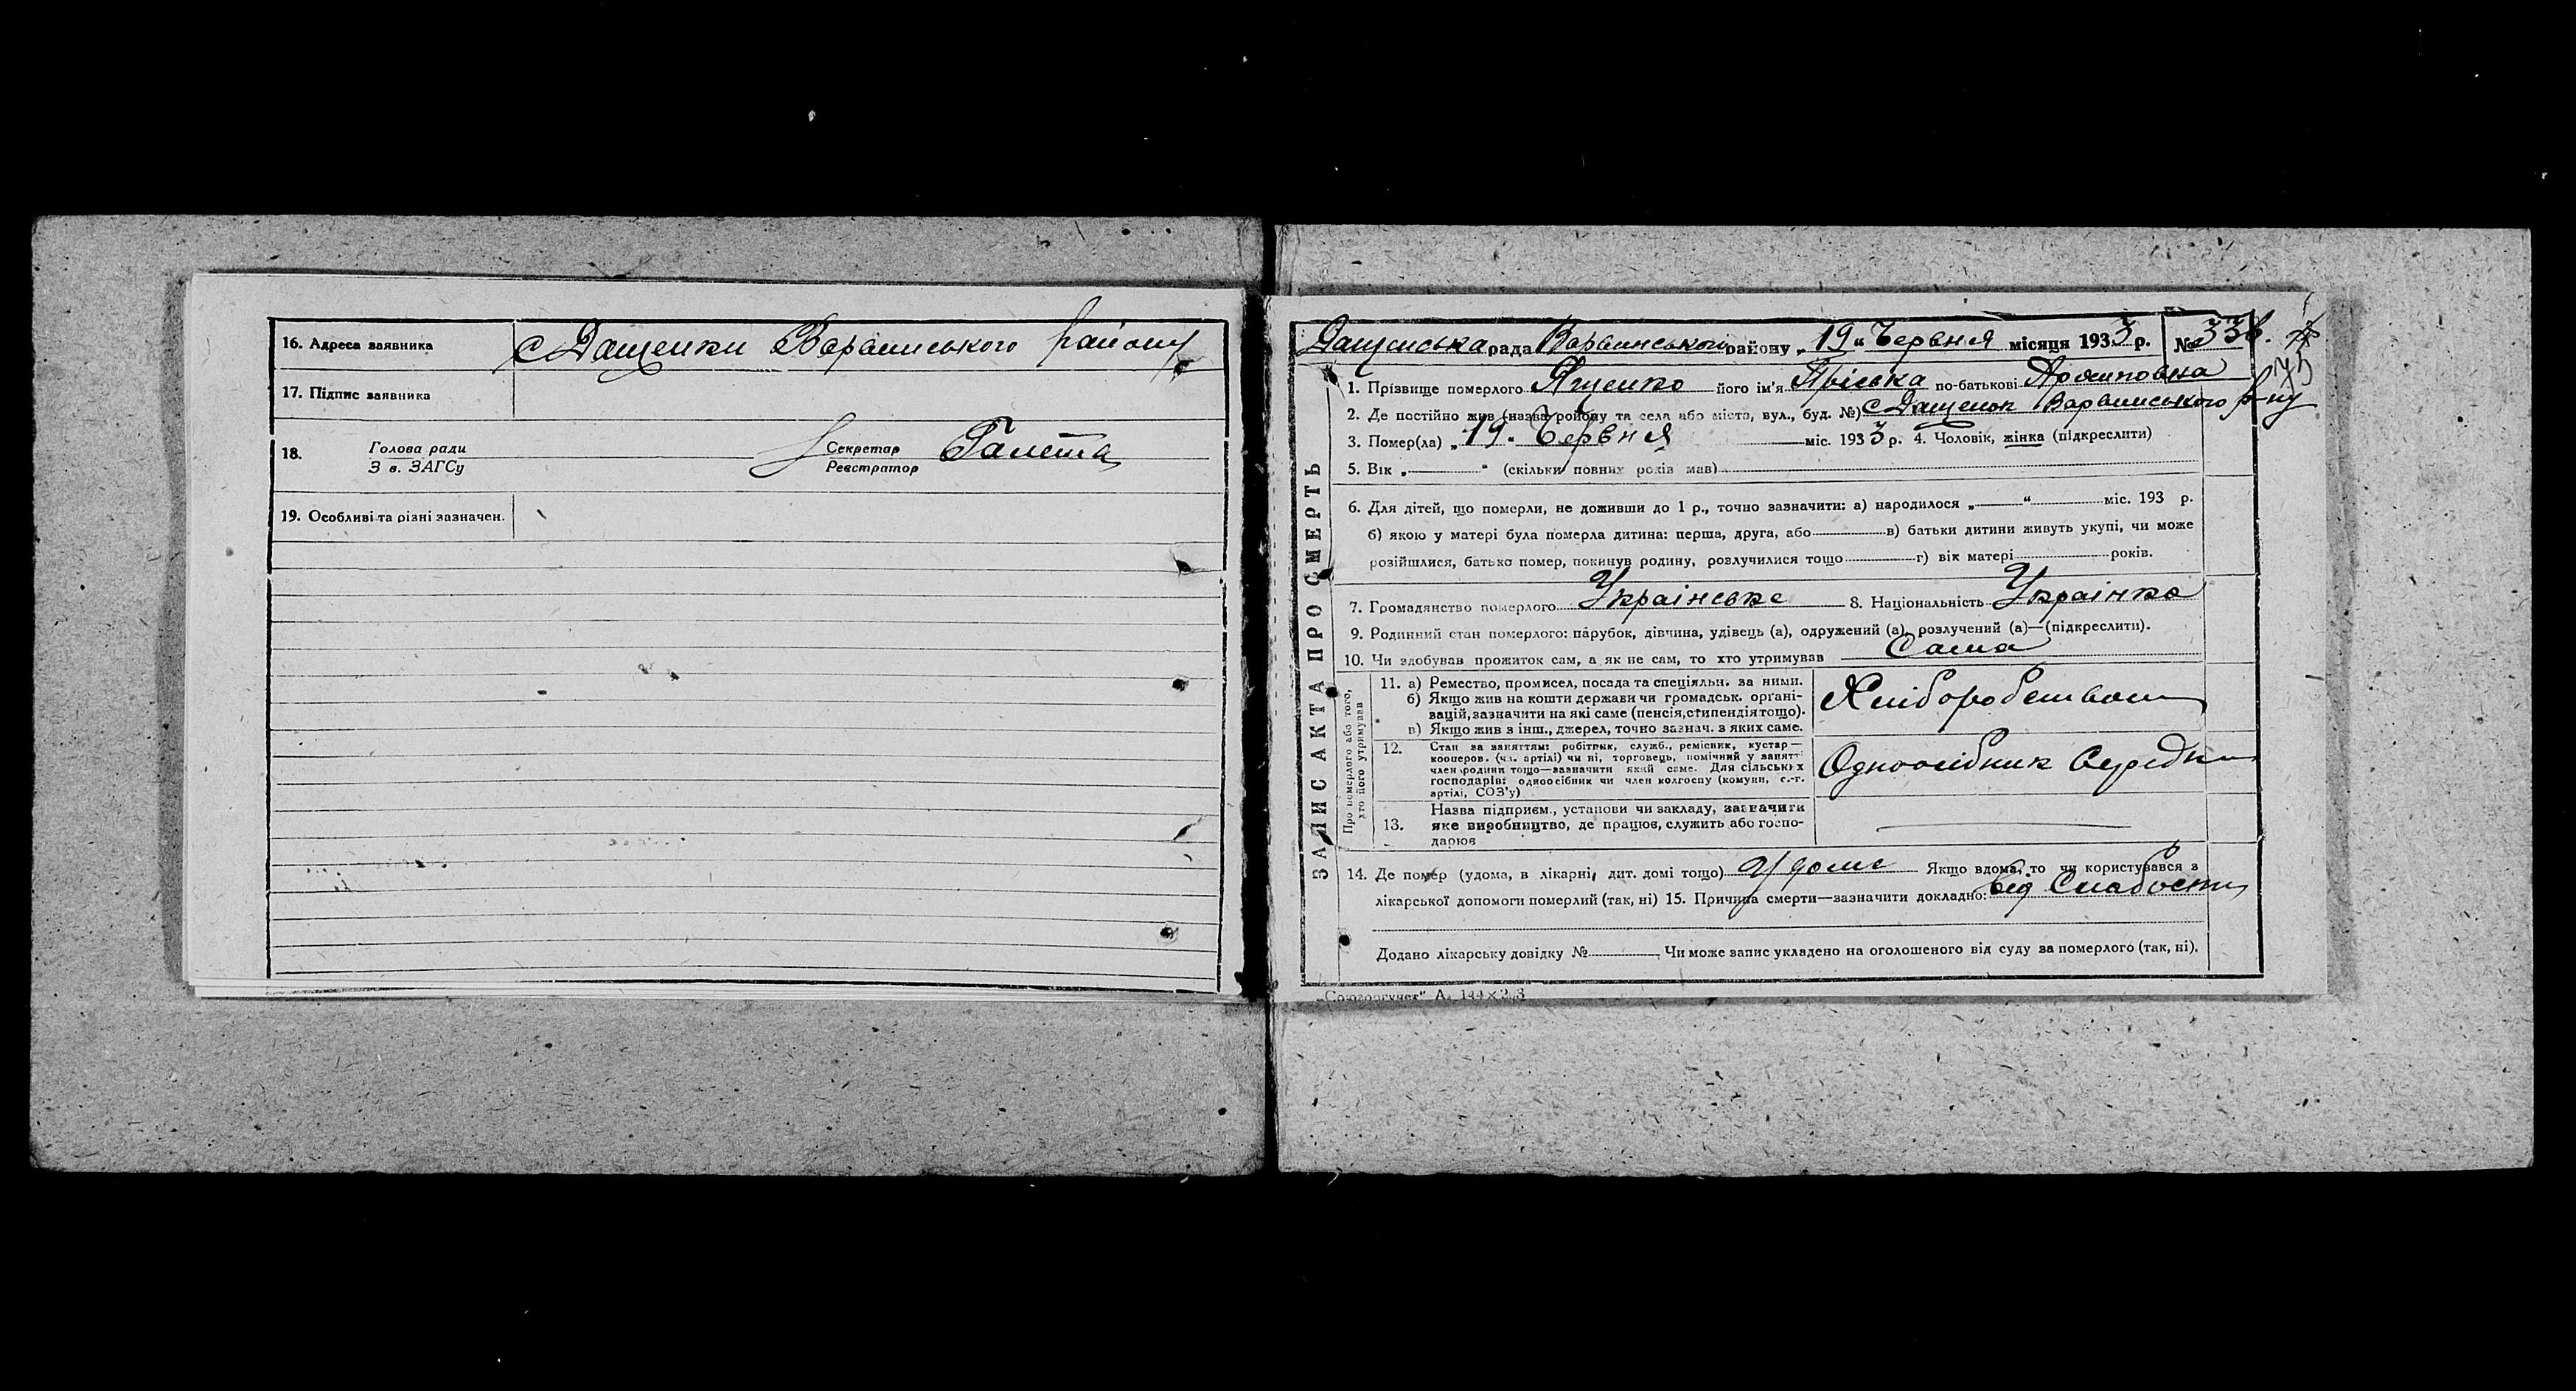 16. Адреса заявника с Дащенки Варвинського району
17. Підпис заявника
18. Голова ради Секретар Галета
З в. ЗАГСу Реєстратор
19. Особливі та різні зазначен.
Дащенська рада Варвинського району „19“ Червня місяця 1933 р. № 336.
75
ЗАПИС АКТА ПРО СМЕРТЬ
1. Прізвище померлого Ященко його ім'я Пріська по-батькові Архиповна
2. Де постійно жив (назва району та села або міста, вул., буд. №) с Дащенок Варвинського р-ну
3. Помер(ла) „19“ Червня міс. 1933 р. 4. Чоловік, жінка (підкреслити)
5. Вік „ “ (скільки повних років мав)
6. Для дітей, що померли, не доживши до 1 р., точно зазначити: а) народилося „ “ міс. 193 р.
б) якою у матері була померла дитина: перша, друга, або в) батьки дитини живуть укупі, чи може
розійшлися, батько помер, покинув родину, розлучилися тощо г) вік матері років.
7. Громадянство померлого Українське 8. Національність Українка
9. Родинний стан померлого: парубок, дівчина, удівець (а), одружений (а), розлучений (а)—(підкреслити).
10. Чи здобував прожиток сам, а як не сам, то хто утримував Сама
Про померлого або того, хто його утримував
11. а) Ремество, промисел, посада та спеціяльн. за ними.
б) Якщо жив на кошти держави чи громадськ. органі-
зацій, зазначити на які саме (пенсія, стипендія тощо).
в) Якщо жив з інш., джерел, точно зазнач. з яких саме.
Хліборобством
12. Стан за заняттям: робітник, служб., ремісник, кустар—
кооперов. (чл. артілі) чи ні, торговець, помічний у занятт
член родини тощо—зазначити який саме. Для сільських
господарів: одноосібник чи член колгоспу (комуни, с.-г.
артілі, СОЗ'у)
Одноосібник Середн
13. Назва підприєм., установи чи закладу, зазначити
яке виробництво, де працює, служить або госпо-
дарює
14. Де помер (удома, в лікарні, дит. домі тощо) У доме Якщо вдома, то чи користувався з
лікарської допомоги померлий (так, ні) 15. Причина смерти—зазначити докладно: від Слабости
Додано лікарську довідку № Чи може запис укладено на оголошеного від суду за померлого (так, ні).
„Союзоргучет“ А.